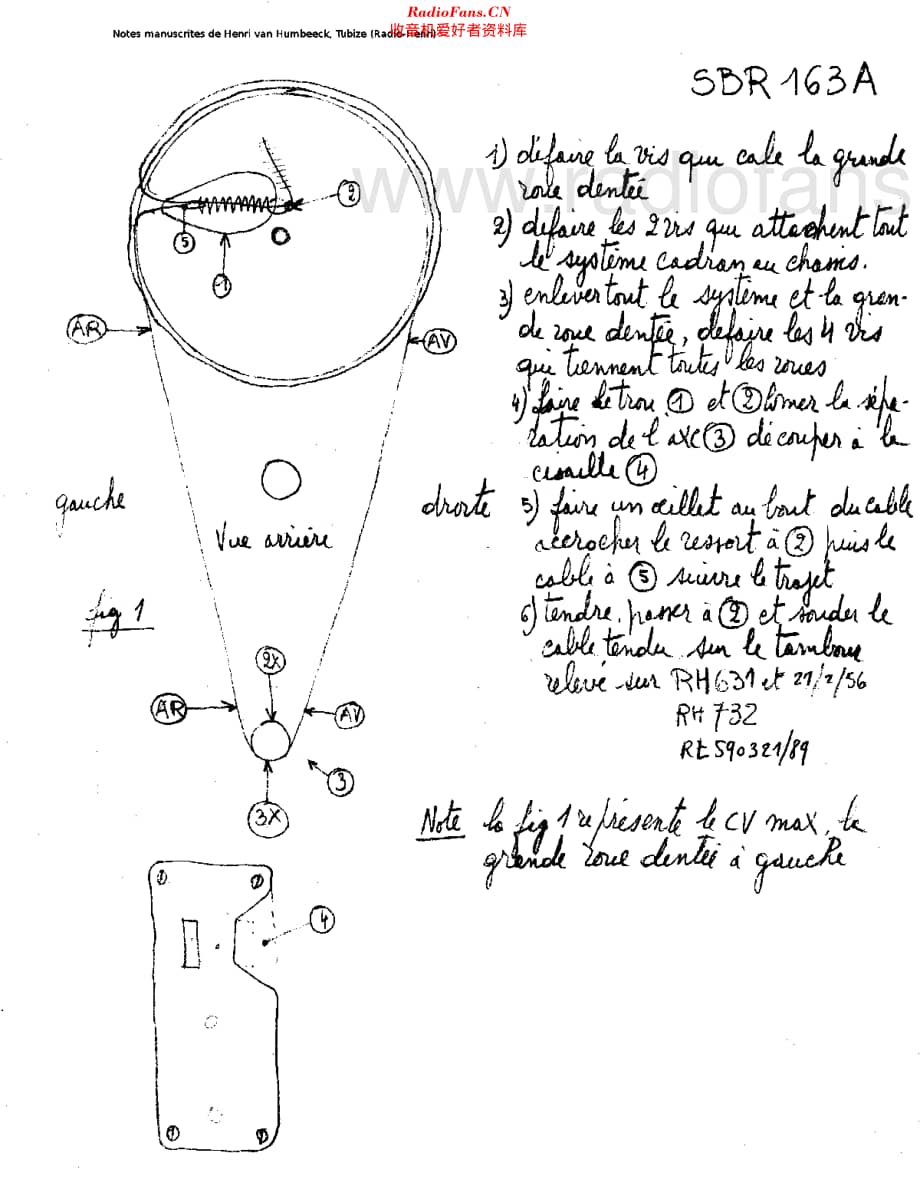 RadioFans.CN
收音机爱好者资料库
Notes manuscrites de Henri van Humbeeck, Tubize (Radio-Henri)
SBR 163A
www.radiofans
1) défaire la vis qui cale la grande
roue dentée
2) défaire les 2 vis qui attachent tout
le système cadran au chassis.
3) enlever tout le système et la gran-
de roue dentée, défaire les 4 vis
qui tiennent toutes les roues
4) faire le trou 1 et 2 limer la sépa-
ration de l'axe 3 découper à la
cisaille 4
5) faire un œillet au bout du cable
accrocher le ressort à 2 puis le
cable à 5 suivre le trajet
6) tendre, passer à 2 et souder le
cable tendu sur le tambour
relevé sur RH631 et 21/2/56
RH 732
RE590321/89
Note la fig 1 représente le CV max, la
grande roue dentée à gauche
2
5
1
AR
AV
gauche
droite
Vue arrière
fig 1
2X
AR
AV
3
3X
4